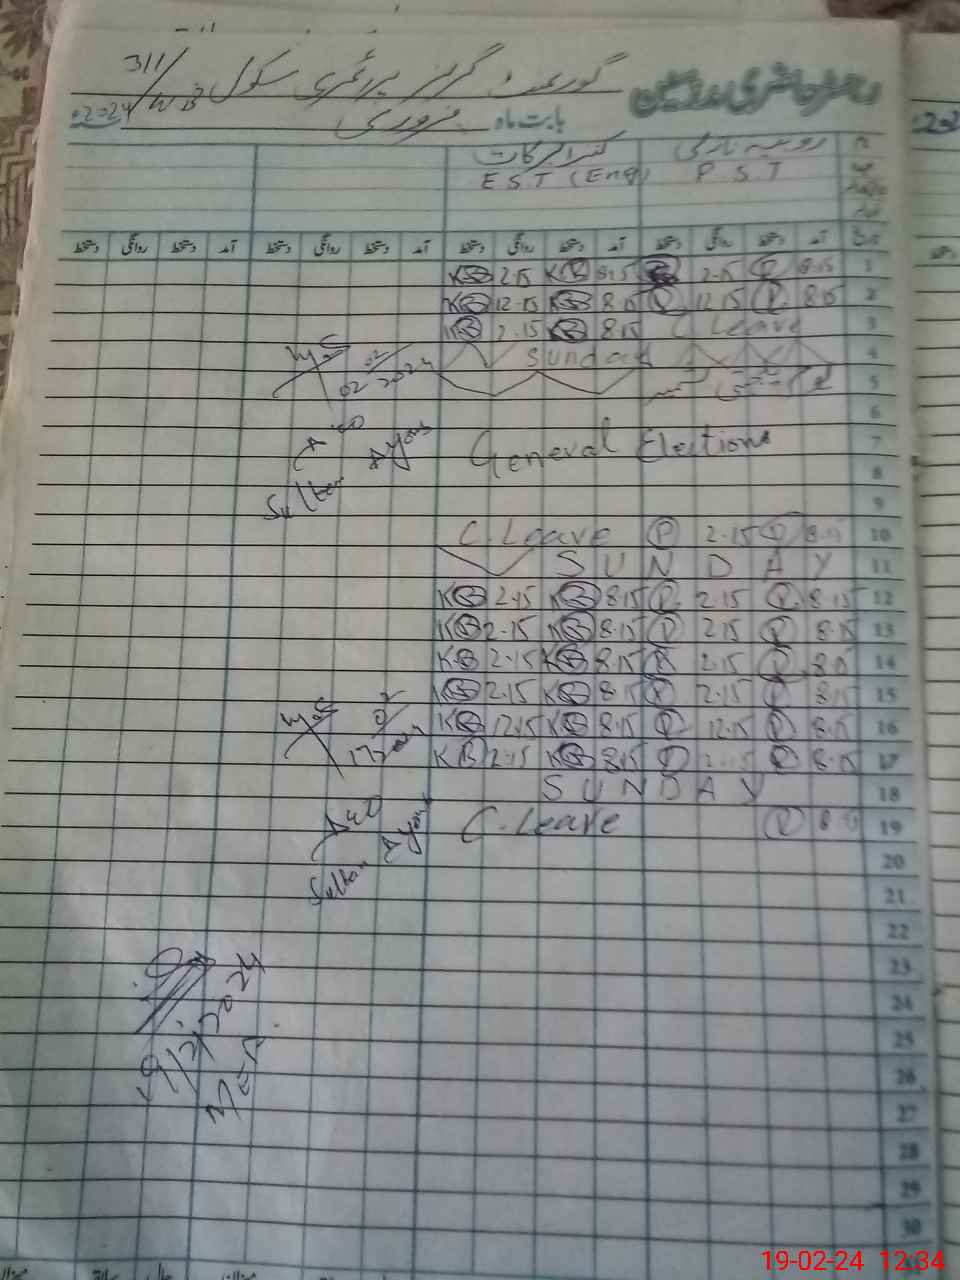 رجسٹر حاضری مدرسین گورنمنٹ گرلز پرائمری سکول 311/WB
بابت ماہ فروری 2024
P.S.T E.S.T (Eng)
تاریخ آمد دستخط روانگی دستخط آمد دستخط روانگی دستخط آمد دستخط روانگی دستخط آمد دستخط روانگی دستخط
KB 2.15 KB 8.15 2.15 P 8.15 1
KB 12.15 KB 8.15 P 12.15 P 8.15 2
KB 2.15 KB 8.15 C Leave 3
Sunday 4
02/02/2024
5
6
AEO
General Elections 7
Sultan Ayous
8
9
C. Leave P 2.15 P 8.15 10
SUNDAY 11
KB 2.15 KB 8.15 P 2.15 P 8.15 12
KB 2.15 KB 8.15 P 2.15 P 8.15 13
KB 2.15 KB 8.15 P 2.15 P 8.15 14
KB 2.15 KB 8.15 P 2.15 P 8.15 15
KB 12.15 KB 8.15 P 12.15 P 8.15 16
KB 2.15 KB 8.15 P 2.15 P 8.15 17
SUNDAY 18
AEO
C. Leave P 8.15 19
Sultan Ayous
20
21
22
23
24
25
19/2/2024
26
27
28
29
30
19-02-24 12:34